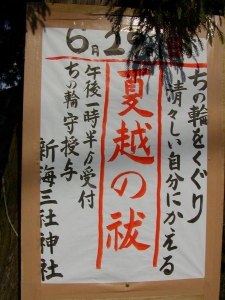 6月29日
ちの輪をくぐり
清々しい自分にかえる
夏越の祓
午後一時半ゟ受付
ちの輪守授与
新海三社神社